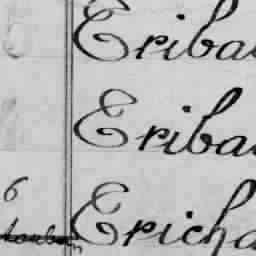 Eriba
Eriba
6
Erich